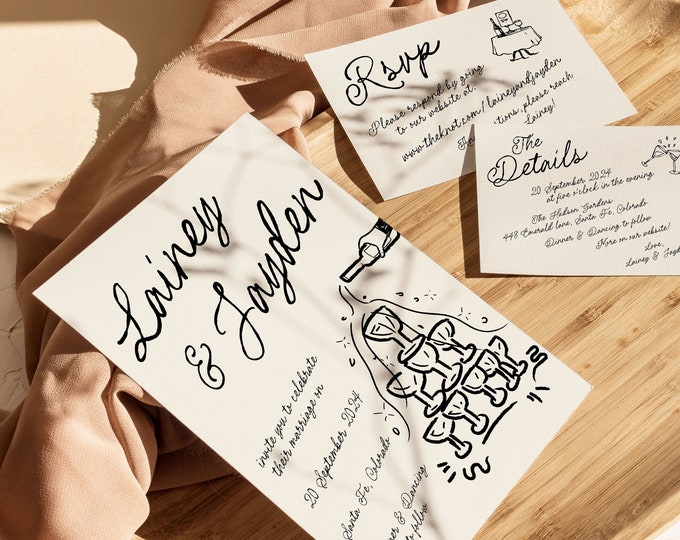 Lainey
& Jayden
invite you to celebrate
their marriage on
20 September 2024
Santa Fe, Colorado
& Dancing
to follow
Rsvp
Please respond by going
to our website at:
www.theknot.com/laineyandjayden
please reach
Lainey!
The
Details
20 September 2024
at five o'clock in the evening
The Hudson Gardens
448 Emerald lane, Santa Fe, Colorado
Dinner & Dancing to follow
More on our website!
Love,
Lainey &